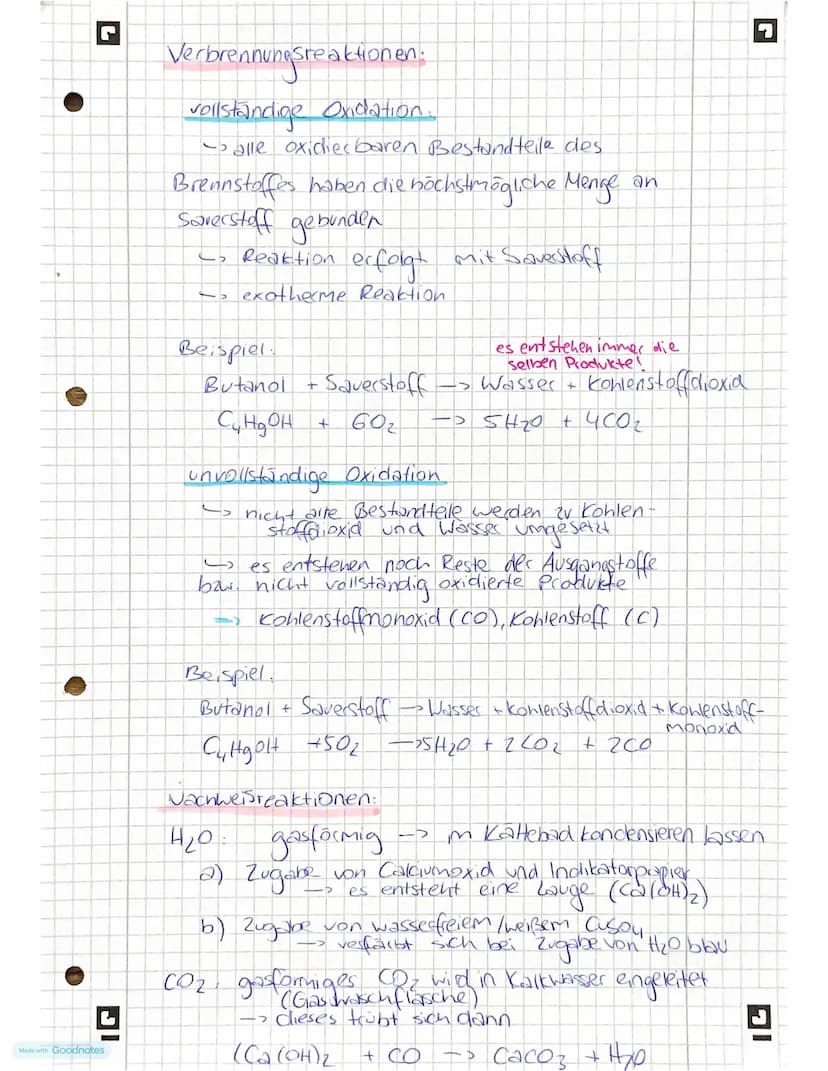 Verbrennungsreaktionen:
vollständige Oxidation:
↳ alle oxidierbaren Bestandteile des
Brennstoffes haben die höchstmögliche Menge an
Sauerstoff gebunden
↳ Reaktion erfolgt mit Sauerstoff
↳ exotherme Reaktion
Beispiel:
es entstehen immer die
selben Produkte!
Butanol + Sauerstoff → Wasser + Kohlenstoffdioxid
C₄H₉OH + 6O₂ → 5H₂O + 4CO₂
unvollständige Oxidation
↳ nicht alle Bestandteile werden zu Kohlen-
stoffdioxid und Wasser umgesetzt
↳ es entstehen noch Reste der Ausgangstoffe
bzw. nicht vollständig oxidierte Produkte
⇒ Kohlenstoffmonoxid (CO), Kohlenstoff (C)
Beispiel:
Butanol + Sauerstoff → Wasser + Kohlenstoffdioxid + Kohlenstoff-
monoxid
C₄H₉OH + 5O₂ → 5H₂O + 2CO₂ + 2CO
Nachweisreaktionen:
H₂O: gasförmig → in Kältebad kondensieren lassen
a) Zugabe von Calciumoxid und Indikatorpapier
→ es entsteht eine Lauge (Ca(OH)₂)
b) Zugabe von wasserfreiem/weißem CuSO₄
→ verfärbt sich bei Zugabe von H₂O blau
CO₂: gasförmiges CO₂ wird in Kalkwasser eingeleitet
(Gaswaschflasche)
→ dieses trübt sich dann
(Ca(OH)₂ + CO → CaCO₃ + H₂O
Made with Goodnotes